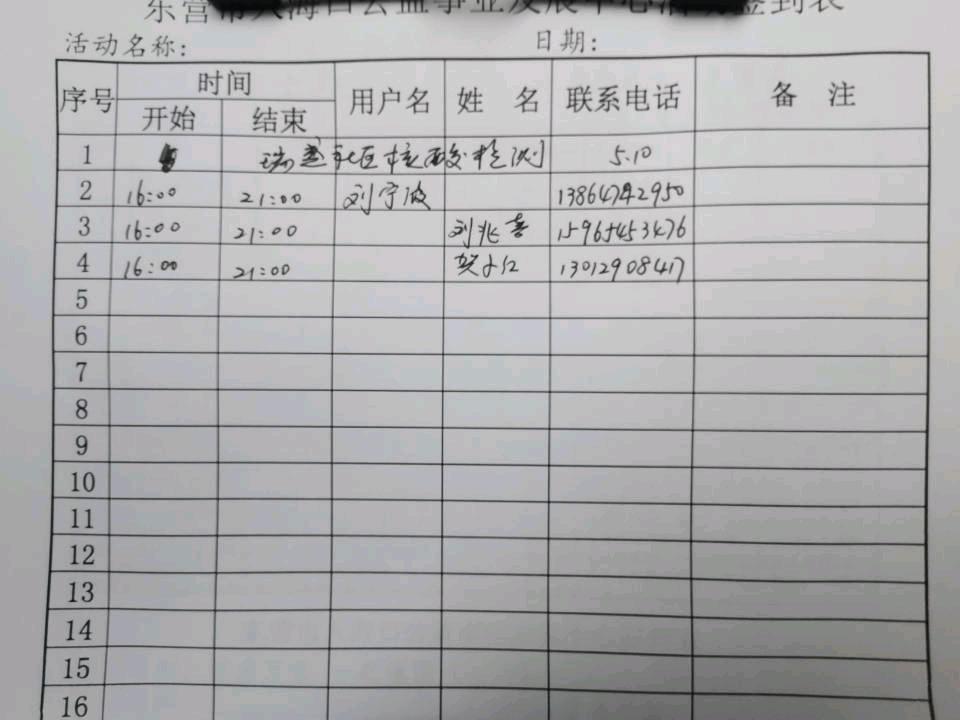 东营市入海口公益事业发展中心活动签到表
活动名称: 日期:
序号 时间 用户名 姓 名 联系电话 备 注
开始 结束
1 社区核酸检测 5.10
2 16:00 21:00 刘宁波
3 16:00 21:00 刘兆喜 15965453476
4 16:00 21:00 13012908417
5
6
7
8
9
10
11
12
13
14
15
16